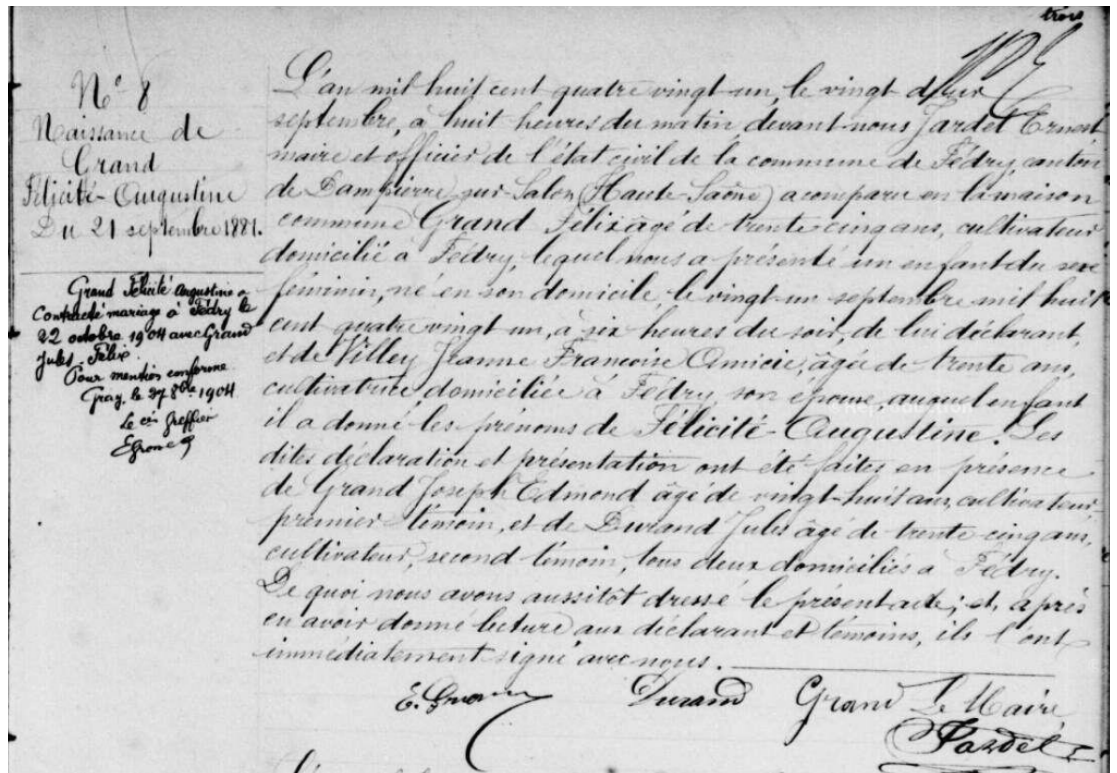 trois
N° 8
Naissance de
Grand
Félicité-Augustine
Du 21 septembre 1881.
Grand Félicité Augustine a
Contracté mariage à Fédry le
22 octobre 1904 avec Grand
Jules-Félix.
Pour mention conforme
Gray, le 27 8bre 1904
Le cis Greffier
L'an mil huit cent quatre vingt un, le vingt deux
septembre, à huit heures du matin devant nous Jardel Ernest
maire et officier de l'état civil de la commune de Fédry, canton
de Dampierre sur-Salon (Haute-Saône) a comparu en la maison
commune Grand Félix âgé de trente-cinq ans, cultivateur
domicilié à Fédry, lequel nous a présenté un enfant du sexe
féminin, né en son domicile le vingt-un septembre mil huit
cent quatre vingt un, à six heures du soir, de lui déclarant,
et de Villey Jeanne Françoise Amicie, agée de trente ans,
cultivatrice domiciliée à Fédry, son épouse, auquel enfant
il a donné les prénoms de Félicité-Augustine. Les
dites déclaration et présentation ont été faites en présence
de Grand Joseph Edmond âgé de vingt-huit ans, cultivateur
premier témoin, et de Durand Jules âgé de trente cinq ans,
cultivateur, second témoin, tous deux domiciliés à Fédry.
De quoi nous avons aussitôt dressé le présent acte; et, après
en avoir donné lecture aux déclarant et témoins, ils l'ont
immédiatement signé avec nous.
Durand Grand Le Maire
Jardel
©Reproduction